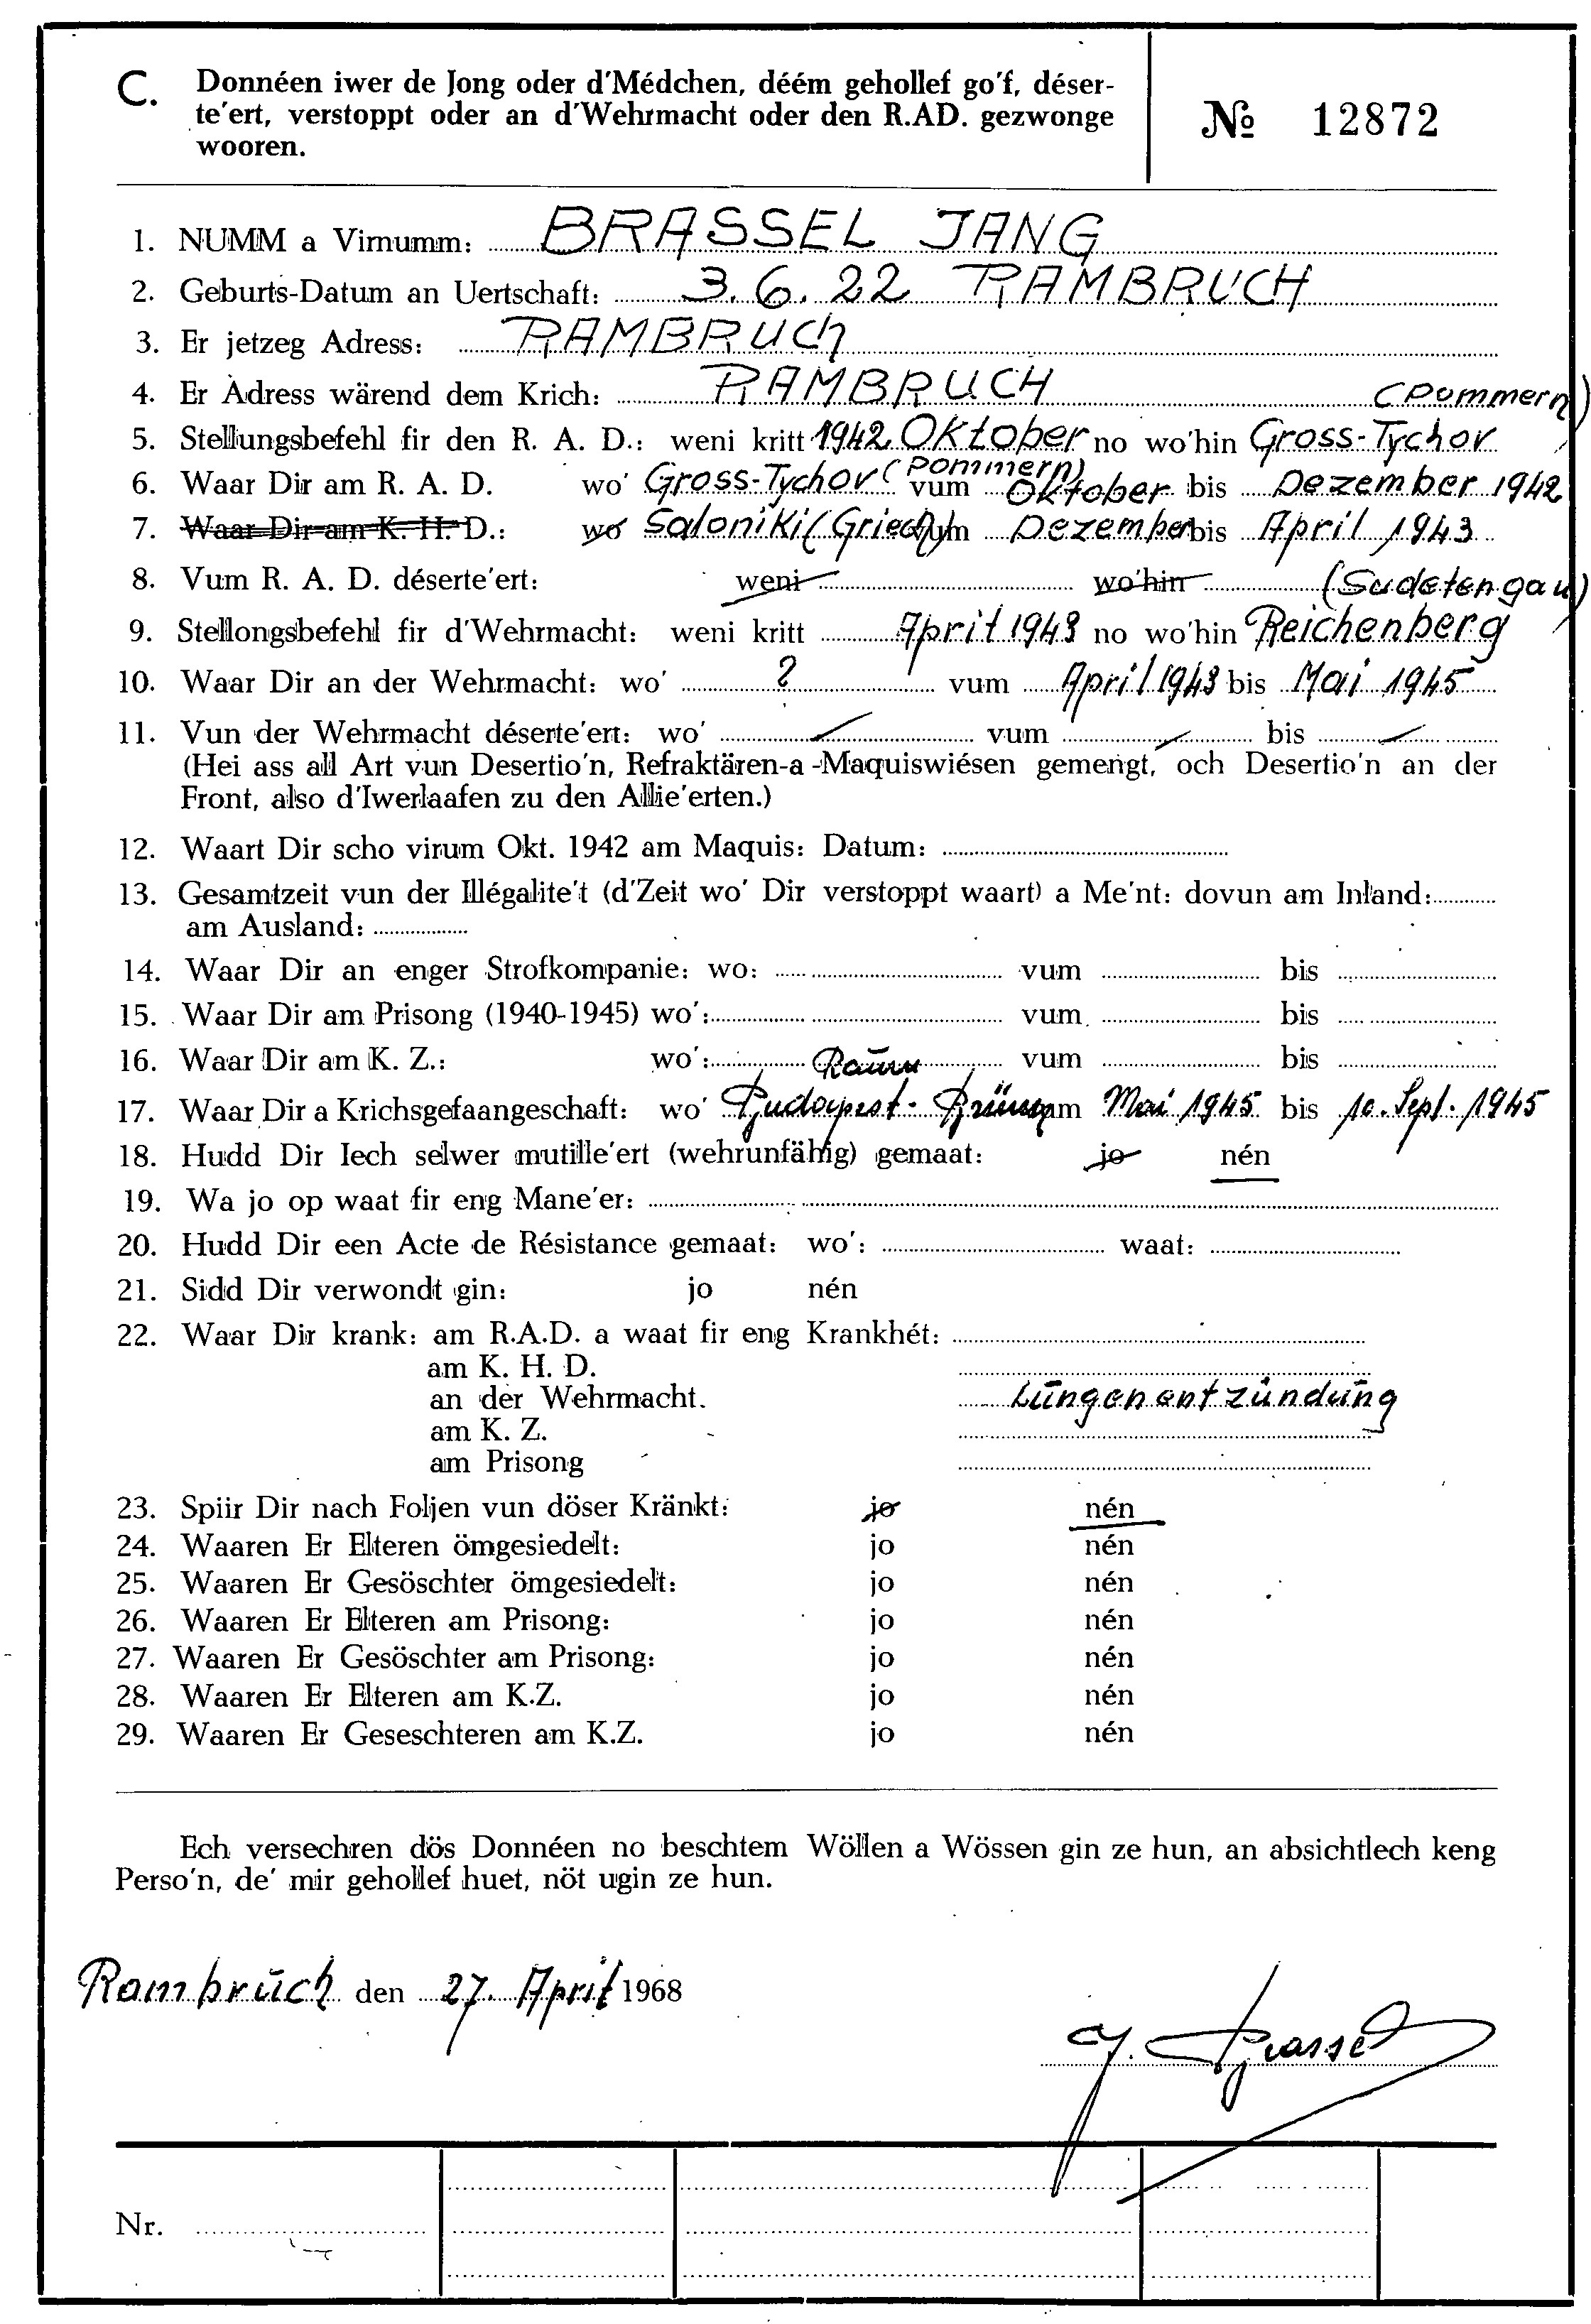 C. Donnéen iwer de Jong oder d'Médchen, déém gehollef go'f, déser-
te'ert, verstoppt oder an d'Wehrmacht oder den R.AD. gezwonge
wooren.
№ 12872
1. NUMM a Virnumm: BRASSEL JANG
2. Geburts-Datum an Uertschaft: 3.6.22 RAMBRUCH
3. Er jetzeg Adress: RAMBRUCH
4. Er Adress wärend dem Krich: RAMBRUCH
(Pommern)
5. Stellungsbefehl fir den R. A. D.: weni kritt 1942 Oktober no wo'hin Gross-Tychov
6. Waar Dir am R. A. D. wo' Gross-Tychov (Pommern) vum Oktober bis Dezember 1942
7. Waar Dir am K. H. D.: wo' Saloniki (Griech) vum Dezember bis April 1943
8. Vum R. A. D. déserte'ert: weni wo'hin
(Sudetengau)
9. Stellongsbefehl fir d'Wehrmacht: weni kritt April 1943 no wo'hin Reichenberg
10. Waar Dir an der Wehrmacht: wo' ? vum April 1943 bis Mai 1945
11. Vun der Wehrmacht déserte'ert: wo' vum bis
(Hei ass all Art vun Desertio'n, Refraktären-a-Maquiswiésen gemengt, och Desertio'n an der
Front, also d'Iwerlaafen zu den Allie'erten.)
12. Waart Dir scho virum Okt. 1942 am Maquis: Datum:
13. Gesamtzeit vun der Illégalite't (d'Zeit wo' Dir verstoppt waart) a Me'nt: dovun am Inland:
am Ausland:
14. Waar Dir an enger Strofkompanie: wo: vum bis
15. Waar Dir am Prisong (1940-1945) wo': vum bis
16. Waar Dir am K. Z.: wo': vum bis
17. Waar Dir a Krichsgefaangeschaft: wo' Budapest - Brünn vum Mai 1945 bis 10. Sept. 1945
18. Hudd Dir Iech selwer mutille'ert (wehrunfähig) gemaat: jo nén
19. Wa jo op waat fir eng Mane'er:
20. Hudd Dir een Acte de Résistance gemaat: wo': waat:
21. Sidd Dir verwondt gin: jo nén
22. Waar Dir krank: am R.A.D. a waat fir eng Krankhét:
am K. H. D.
an der Wehrmacht. Lungenentzündung
am K. Z.
am Prisong
23. Spiir Dir nach Foljen vun döser Kränkt: jo nén
24. Waaren Er Elteren ömgesiedelt: jo nén
25. Waaren Er Gesöschter ömgesiedelt: jo nén
26. Waaren Er Elteren am Prisong: jo nén
27. Waaren Er Gesöschter am Prisong: jo nén
28. Waaren Er Elteren am K.Z. jo nén
29. Waaren Er Geseschteren am K.Z. jo nén
Ech versechren dös Donnéen no beschtem Wöllen a Wössen gin ze hun, an absichtlech keng
Perso'n, de' mir gehollef huet, nöt ugin ze hun.
Rambruch den 27. April 1968
J. Brassel
Nr.